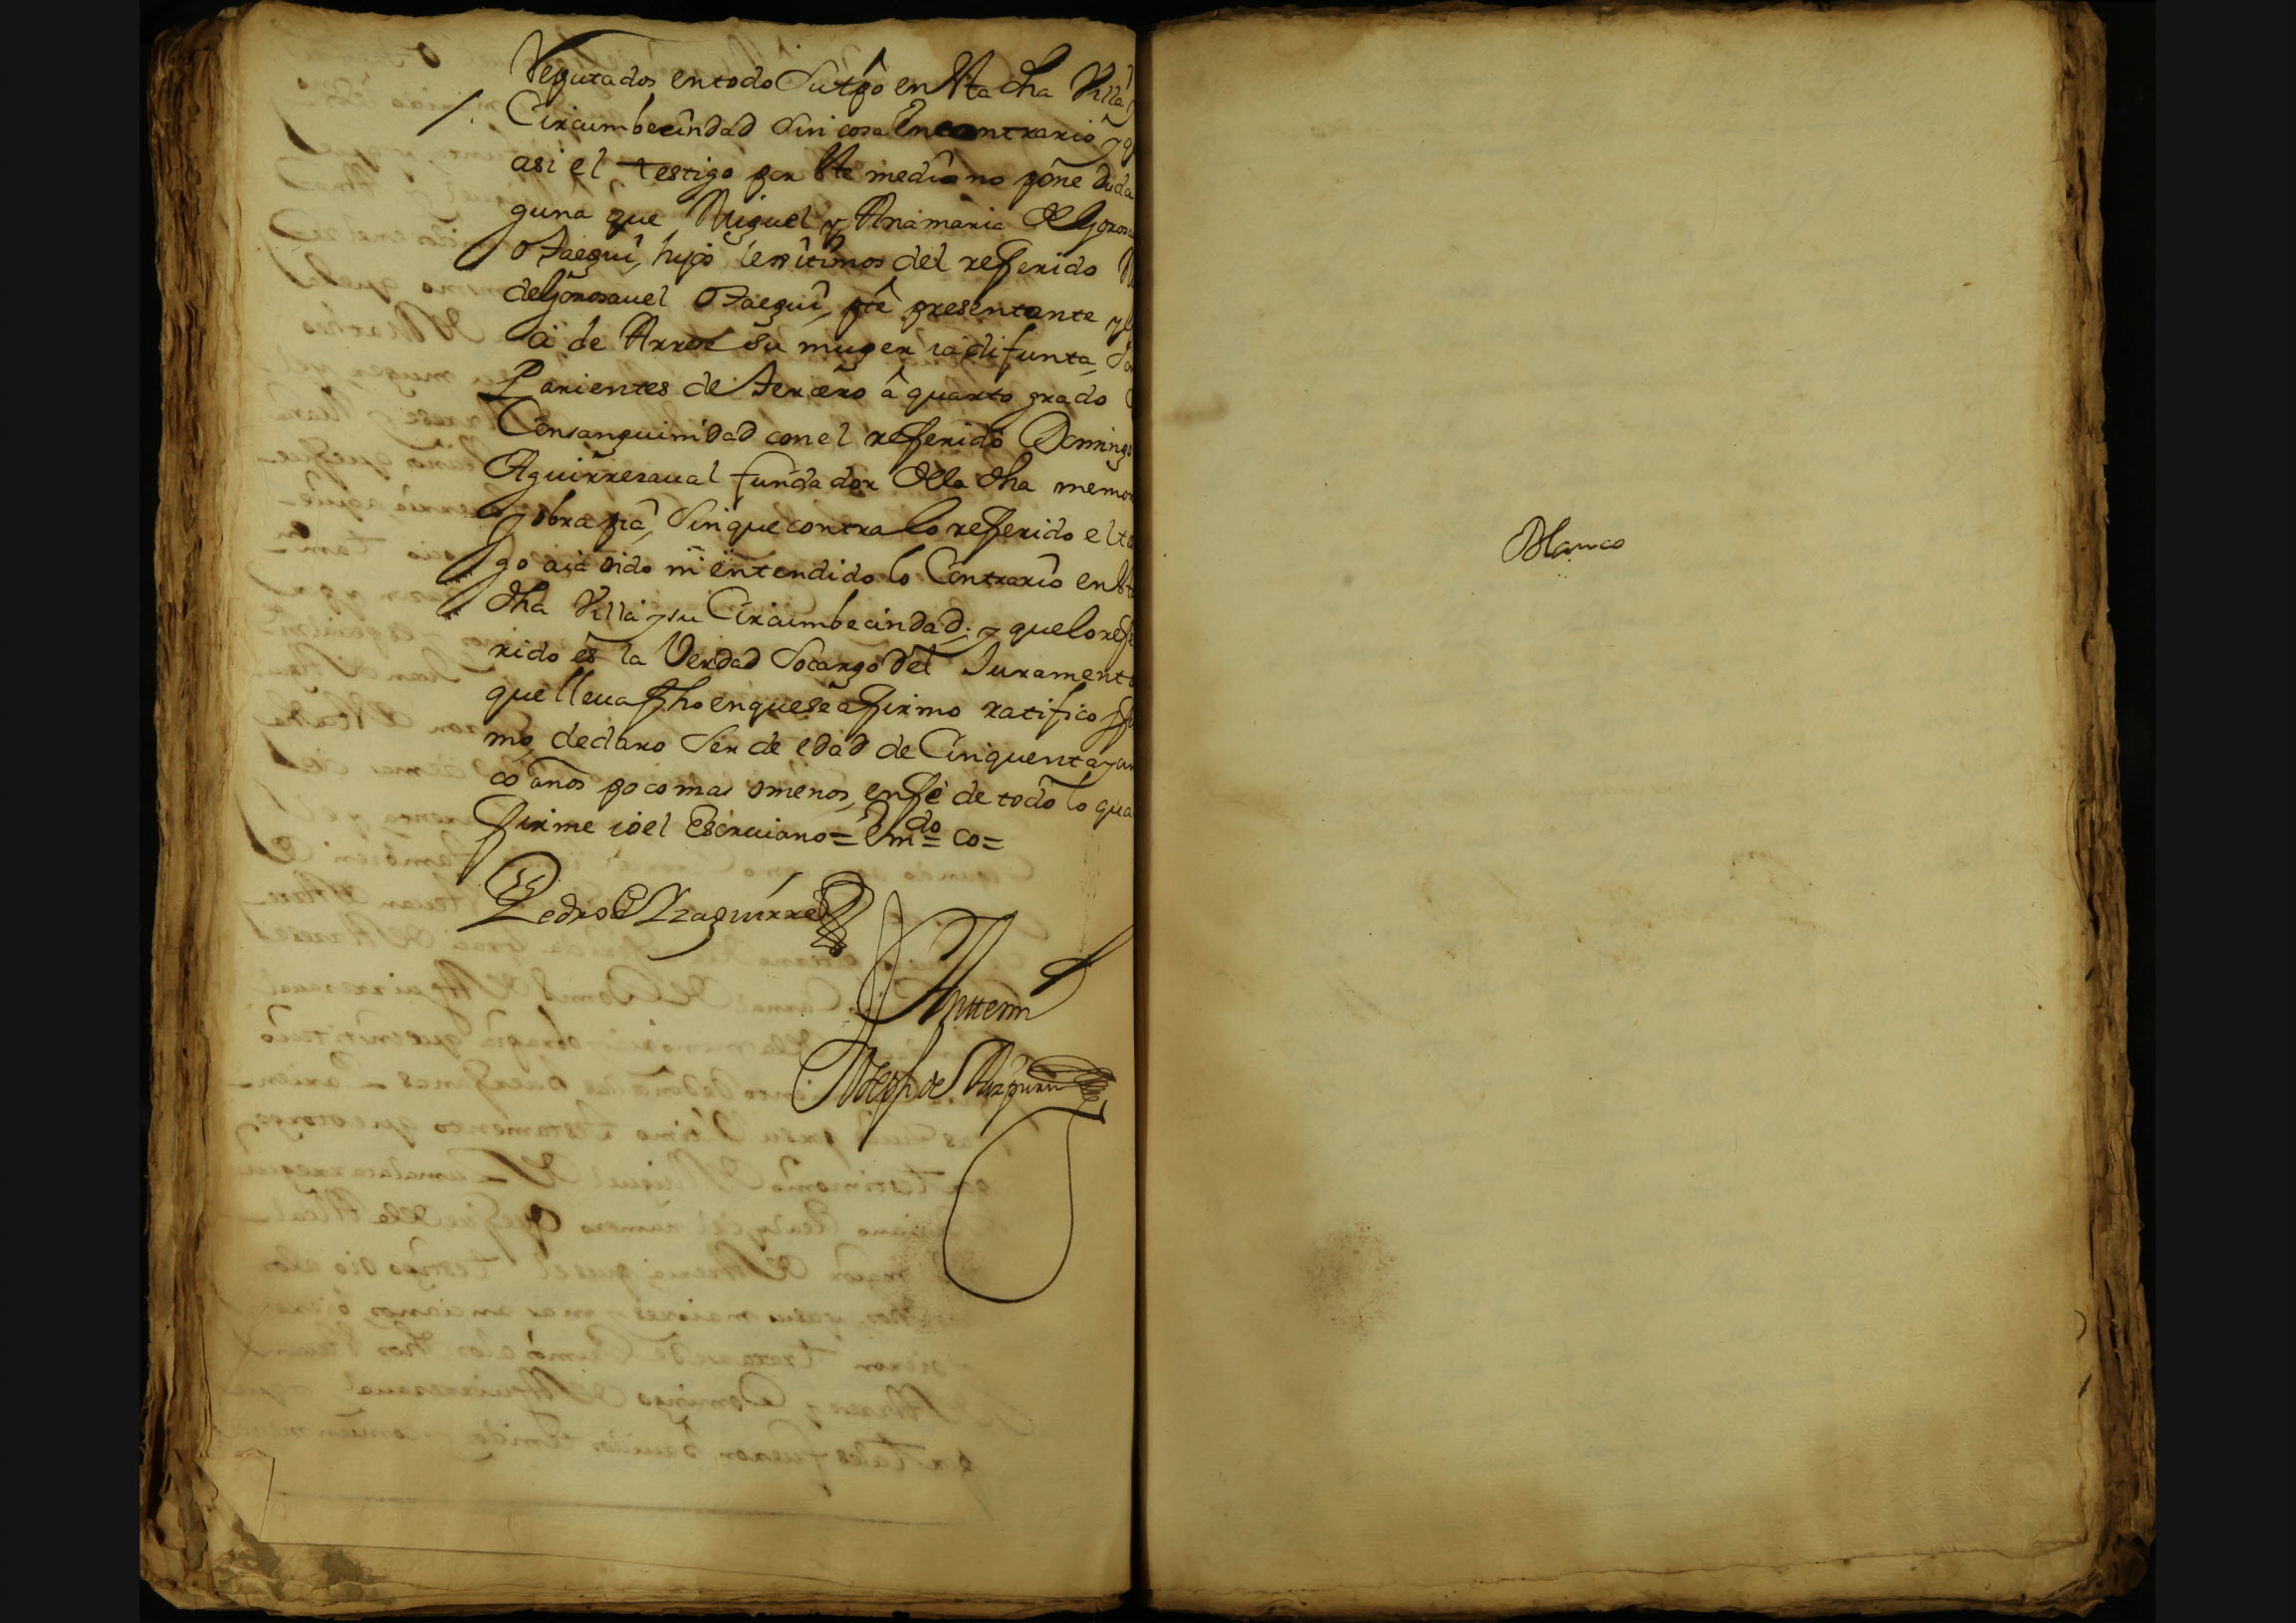 Reputados entodo Sutpô en Esta dha Villa
Circumbecindad Sin cosa Encontrario y q
asi el testigo por Este medio no pone duda
guna que Miguel y Anamaria de Goros
Otaegui, hijos lexitimos del referido M
de Gorosauel Otaegui, pte presentante y
a de Arrese su muger iâ difunta, Son
Parientes de terzero â quarto grado
Consanguinidad con el referido Domingo
Aguirresaual fundador della dha memor
y obra piâ, Sin que contra lo referido el t
go aia oido ni entendido lo Contrario en Es
dha Villa y su Circumbecindad; y que lo refe
rido es la Verdad Socargo del Juramento
que lleua fho en que se afirmo ratifico y fi
mo, declaro Ser de edad de Cinquenta y
co años poco mas omenos, en fe de todo lo qua
firme io el Escriuano = Em.do = co =
Pedro de Yzaguirre
Antemi
Joseph de
Blanco